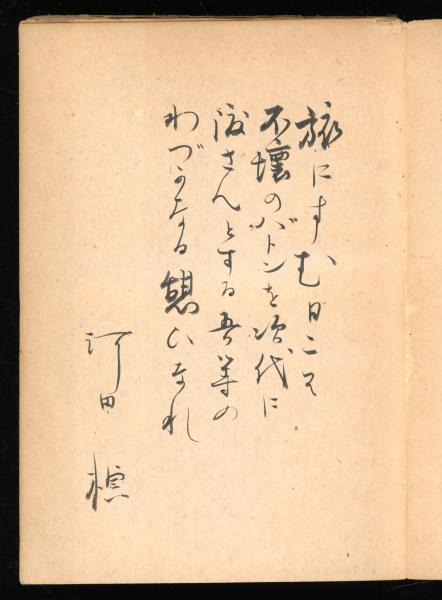 旅にすむ日こそ
不壊のバトンを次代に
渡さんとする吾等の
わづかなる憩ひなれ
河田 楨